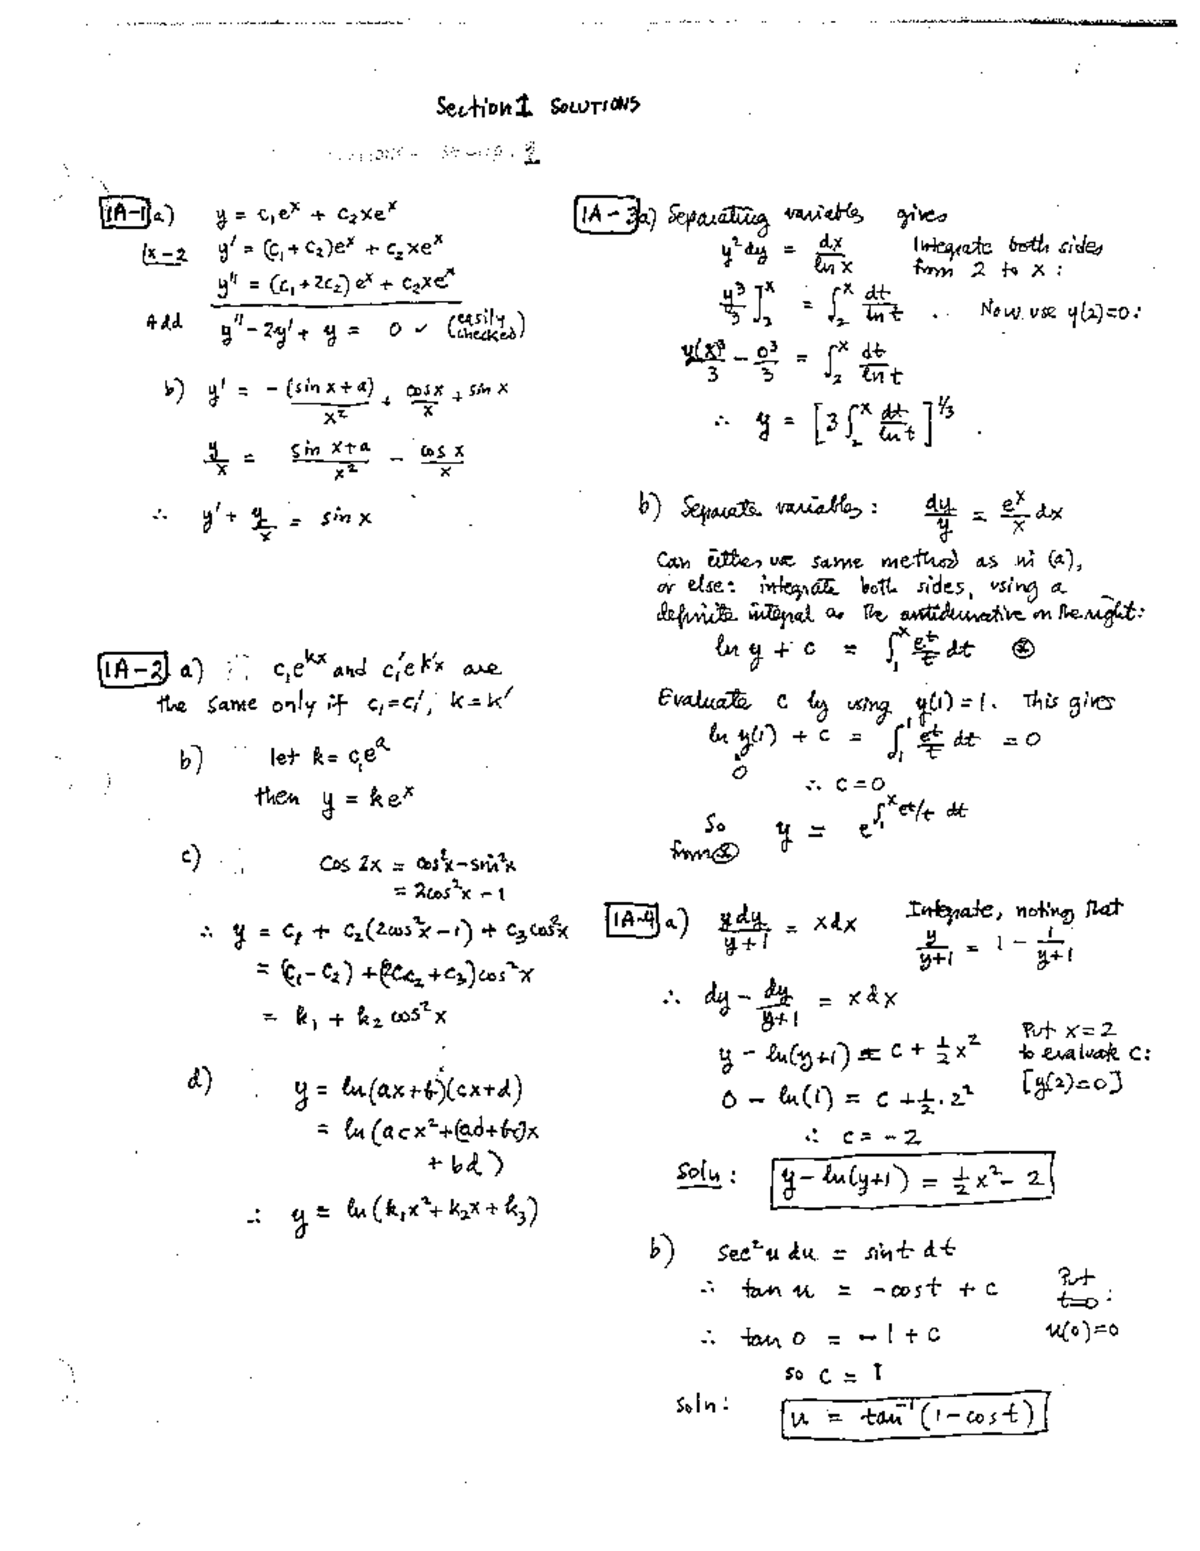 Section 1 SOLUTIONS
1A-1 a) y = c₁eˣ + c₂xeˣ
[x-2 y' = (c₁+c₂)eˣ + c₂xeˣ
y'' = (c₁+2c₂)eˣ + c₂xeˣ
Add y''-2y'+y = 0 ✓ (easily checked)
b) y' = -(sin x+a)/x² + cos x/x + sin x
y/x = sin x+a/x² - cos x/x
∴ y' + y/x = sin x
1A-2 a) ∵ c₁e^{kx} and c₁'e^{k'x} are
the same only if c₁=c₁', k=k'
b) let k = c₁eᵃ
then y = keˣ
c) cos 2x = cos²x-sin²x
= 2cos²x - 1
∴ y = c₁ + c₂(2cos²x-1) + c₃cos²x
= (c₁-c₂) + (2c₂+c₃)cos²x
= k₁ + k₂ cos²x
d) y = ln(ax+b)(cx+d)
= ln(acx²+(ad+bc)x
+ bd)
∴ y = ln(k₁x²+k₂x+k₃)
1A-3 a) Separating variables gives
y²dy = dx/ln x Integrate both sides
from 2 to x:
y³/3]₂ˣ = ∫₂ˣ dt/ln t. Now use y(2)=0:
y(x)³/3 - 0³/3 = ∫₂ˣ dt/ln t
∴ y = [3∫₂ˣ dt/ln t]^{1/3}.
b) Separate variables: dy/y = eˣ/x dx
Can either use same method as in (a),
or else: integrate both sides, using a
definite integral as the antiderivative on the right:
ln y + c = ∫₁ˣ eᵗ/t dt ⊛
Evaluate c by using y(1)=1. This gives
ln y(1) + c = ∫₁¹ eᵗ/t dt = 0
0
∴ c=0
So y = e^{∫₁ˣ eᵗ/t dt}
from ⊛
1A-4 a) y dy/y+1 = x dx Integrate, noting that
y/y+1 = 1 - 1/y+1
∴ dy - dy/y+1 = x dx
y - ln(y+1) = c + ½x² Put x=2
to evaluate c:
0 - ln(1) = c + ½·2² [y(2)=0]
∴ c = -2
Soln: y - ln(y+1) = ½x² - 2
b) sec²u du = sin t dt
∴ tan u = -cos t + c Put
t=0:
∴ tan 0 = -1 + c u(0)=0
so c = 1
Soln: u = tan⁻¹(1-cos t)